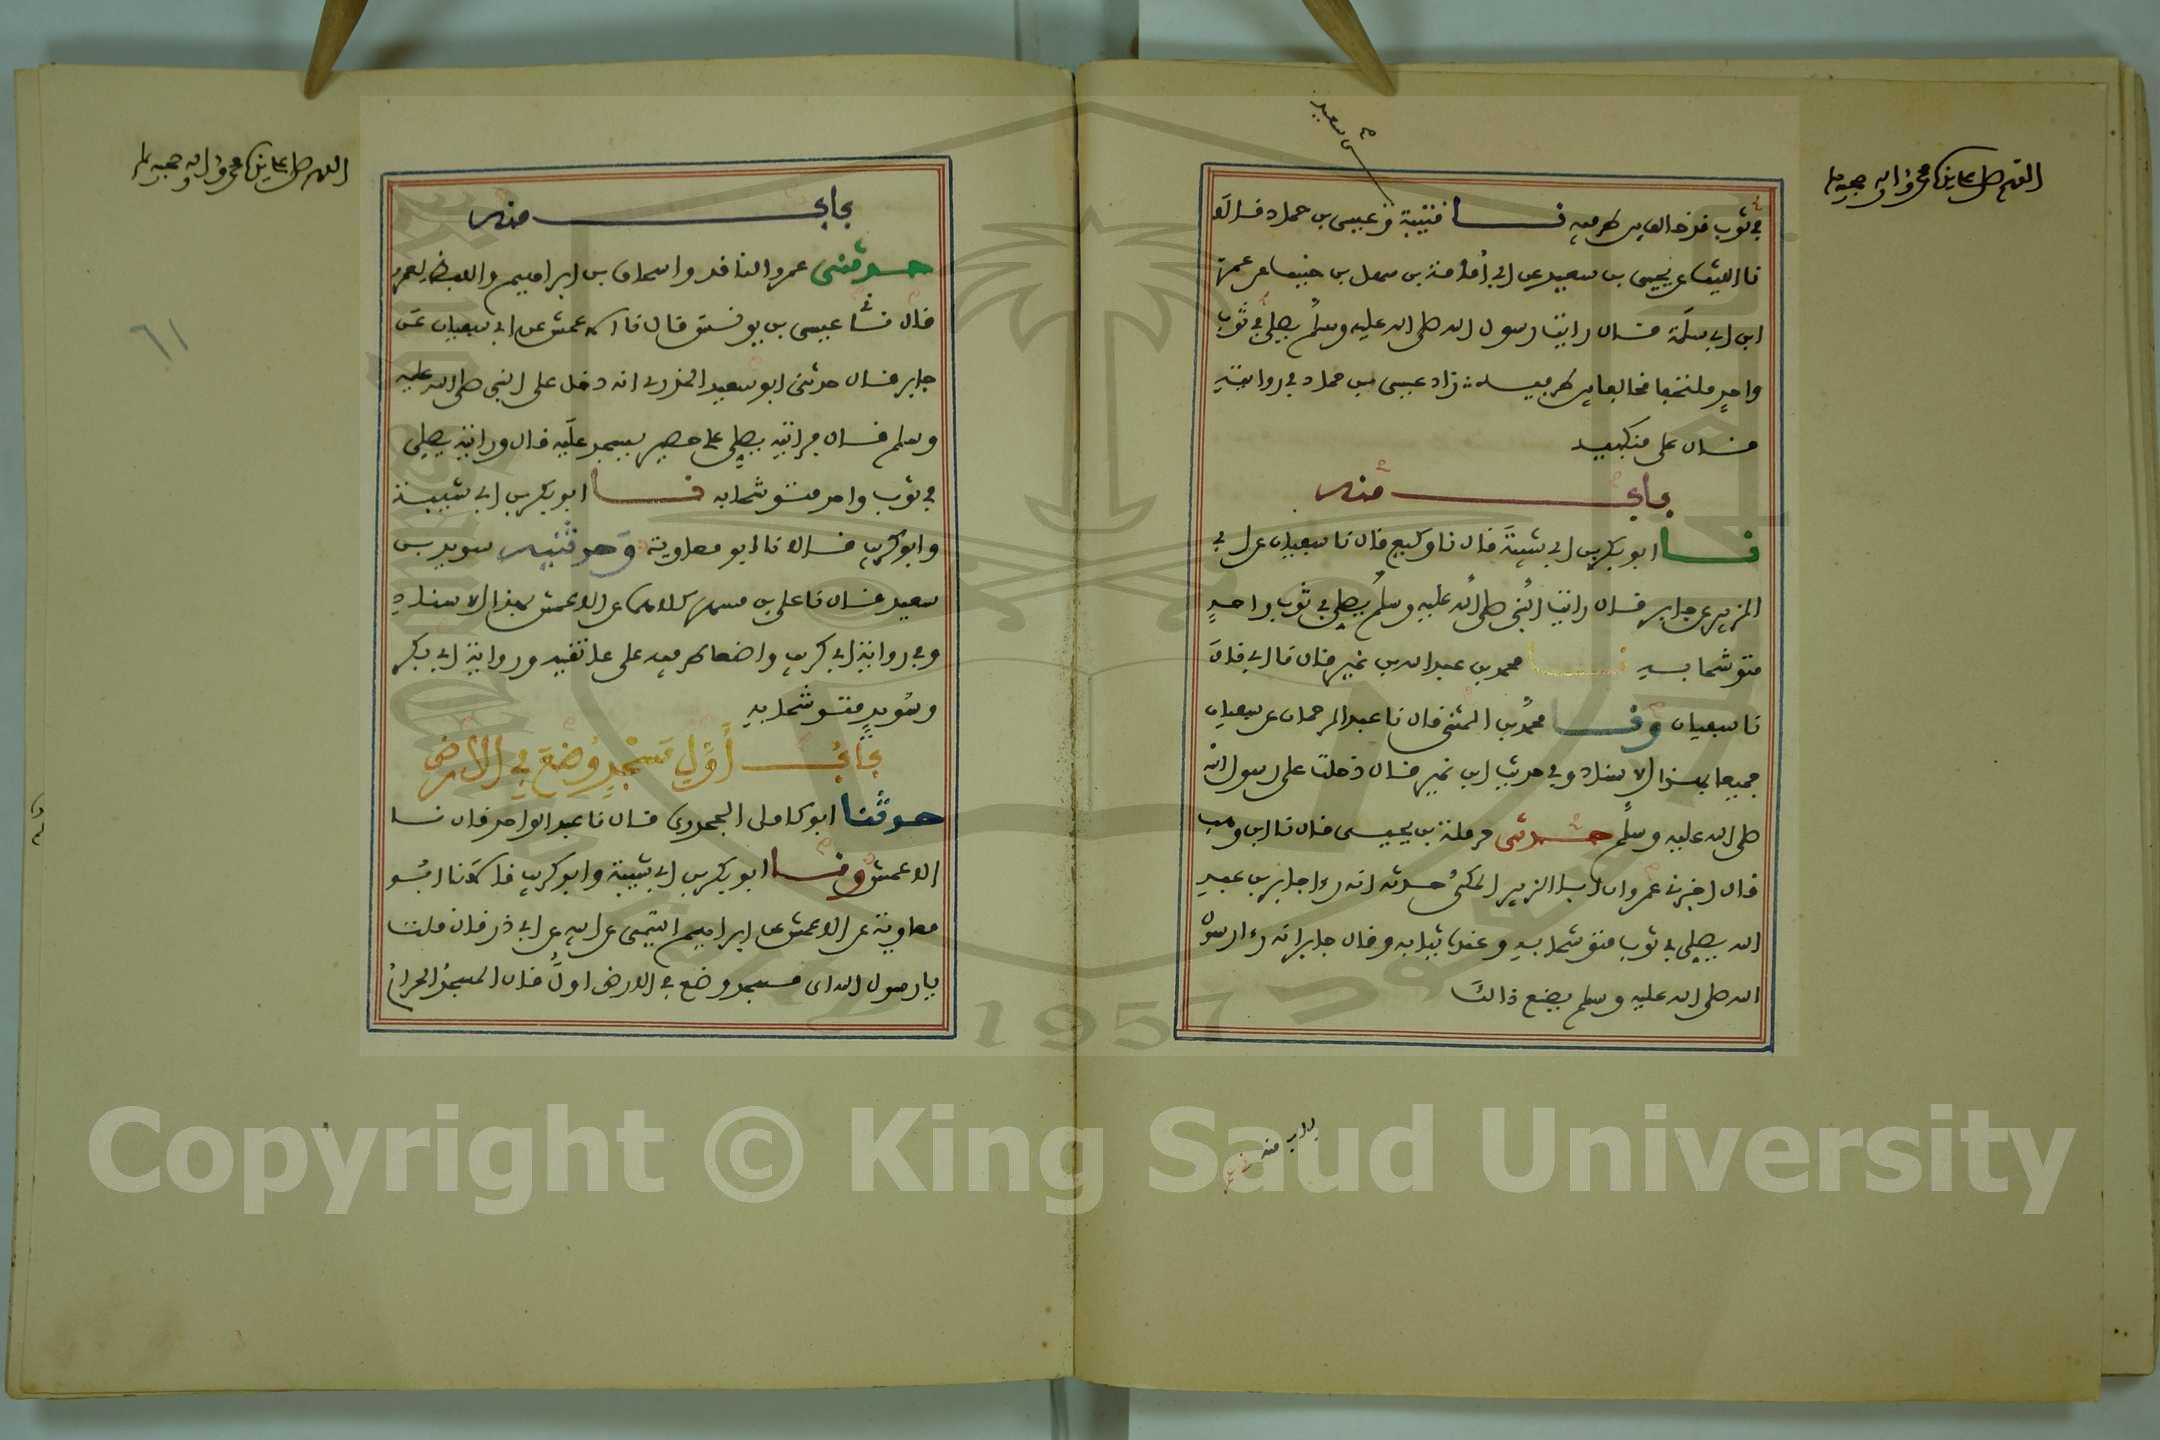 اللهم صل على سيدنا محمد وآله وصحبه وسلم
بن سعيد
في ثوب قد خالف بين طرفيه نا قتيبة وعيسى بن حماد قالا
نا الليث عن يحيى بن سعيد عن ابي أمامة بن سهل بن حنيف عن عمر
ابن ابي سلمة قال رايت رسول الله صلى الله عليه وسلم يصلي في ثوب
واحد ملتحفا مخالفا بين طرفيه زاد عيسى بن حماد في روايته
قال على منكبيه
باب منه
نا ابو بكر بن ابي شيبة قال نا وكيع قال نا سفيان عن ابي
الزبير عن جابر قال رايت النبي صلى الله عليه وسلم يصلي في ثوب واحد
متوشحا به نا محمد بن عبد الله بن نمير قال نا ابي قال
نا سفيان ونا محمد بن المثنى قال نا عبد الرحمان عن سفيان
جميعا بهذا الاسناد وفي حديث ابن نمير قال دخلت على رسول الله
صلى الله عليه وسلم حدثني حرملة بن يحيى قال نا ابن وهب
قال اخبرني عمرو ان ابا الزبير المكي حدثه انه رءا جابر بن عبد
الله يصلي في ثوب متوشحا به وعنده ثيابه وقال جابر انه رءا رسول
الله صلى الله عليه وسلم يصنع ذالك
باب منه
اللهم صل على سيدنا محمد وآله وصحبه وسلم
٦١
باب منه
حدثني عمرو الناقد واسحاق بن ابراهيم واللفظ لعمرو
قال ثني عيسى بن يونس قال نا الاعمش عن ابي سفيان عن
جابر قال حدثني ابو سعيد الخدري انه دخل على النبي صلى الله عليه
وسلم قال فرايته يصلي على حصير يسجد عليه قال ورايته يصلي
في ثوب واحد متوشحا به نا ابو بكر بن ابي شيبة
وابو كريب قالا نا ابو معاوية وحدثنيه سويد بن
سعيد قال نا علي بن مسهر كلاهما عن الاعمش بهذا الاسناد
وفي رواية ابي كريب واضعا طرفيه على عاتقيه ورواية ابي بكر
وسويد متوشحا به
باب أول مسجد وضع في الارض
حدثنا ابو كامل الجحدري قال نا عبد الواحد قال نا
الاعمش ونا ابو بكر بن ابي شيبة وابو كريب قالا نا ابو
معاوية عن الاعمش عن ابراهيم التيمي عن ابيه عن ابي ذر قال قلت
يا رسول الله اي مسجد وضع في الارض اول قال المسجد الحرام
1957
Copyright © King Saud University